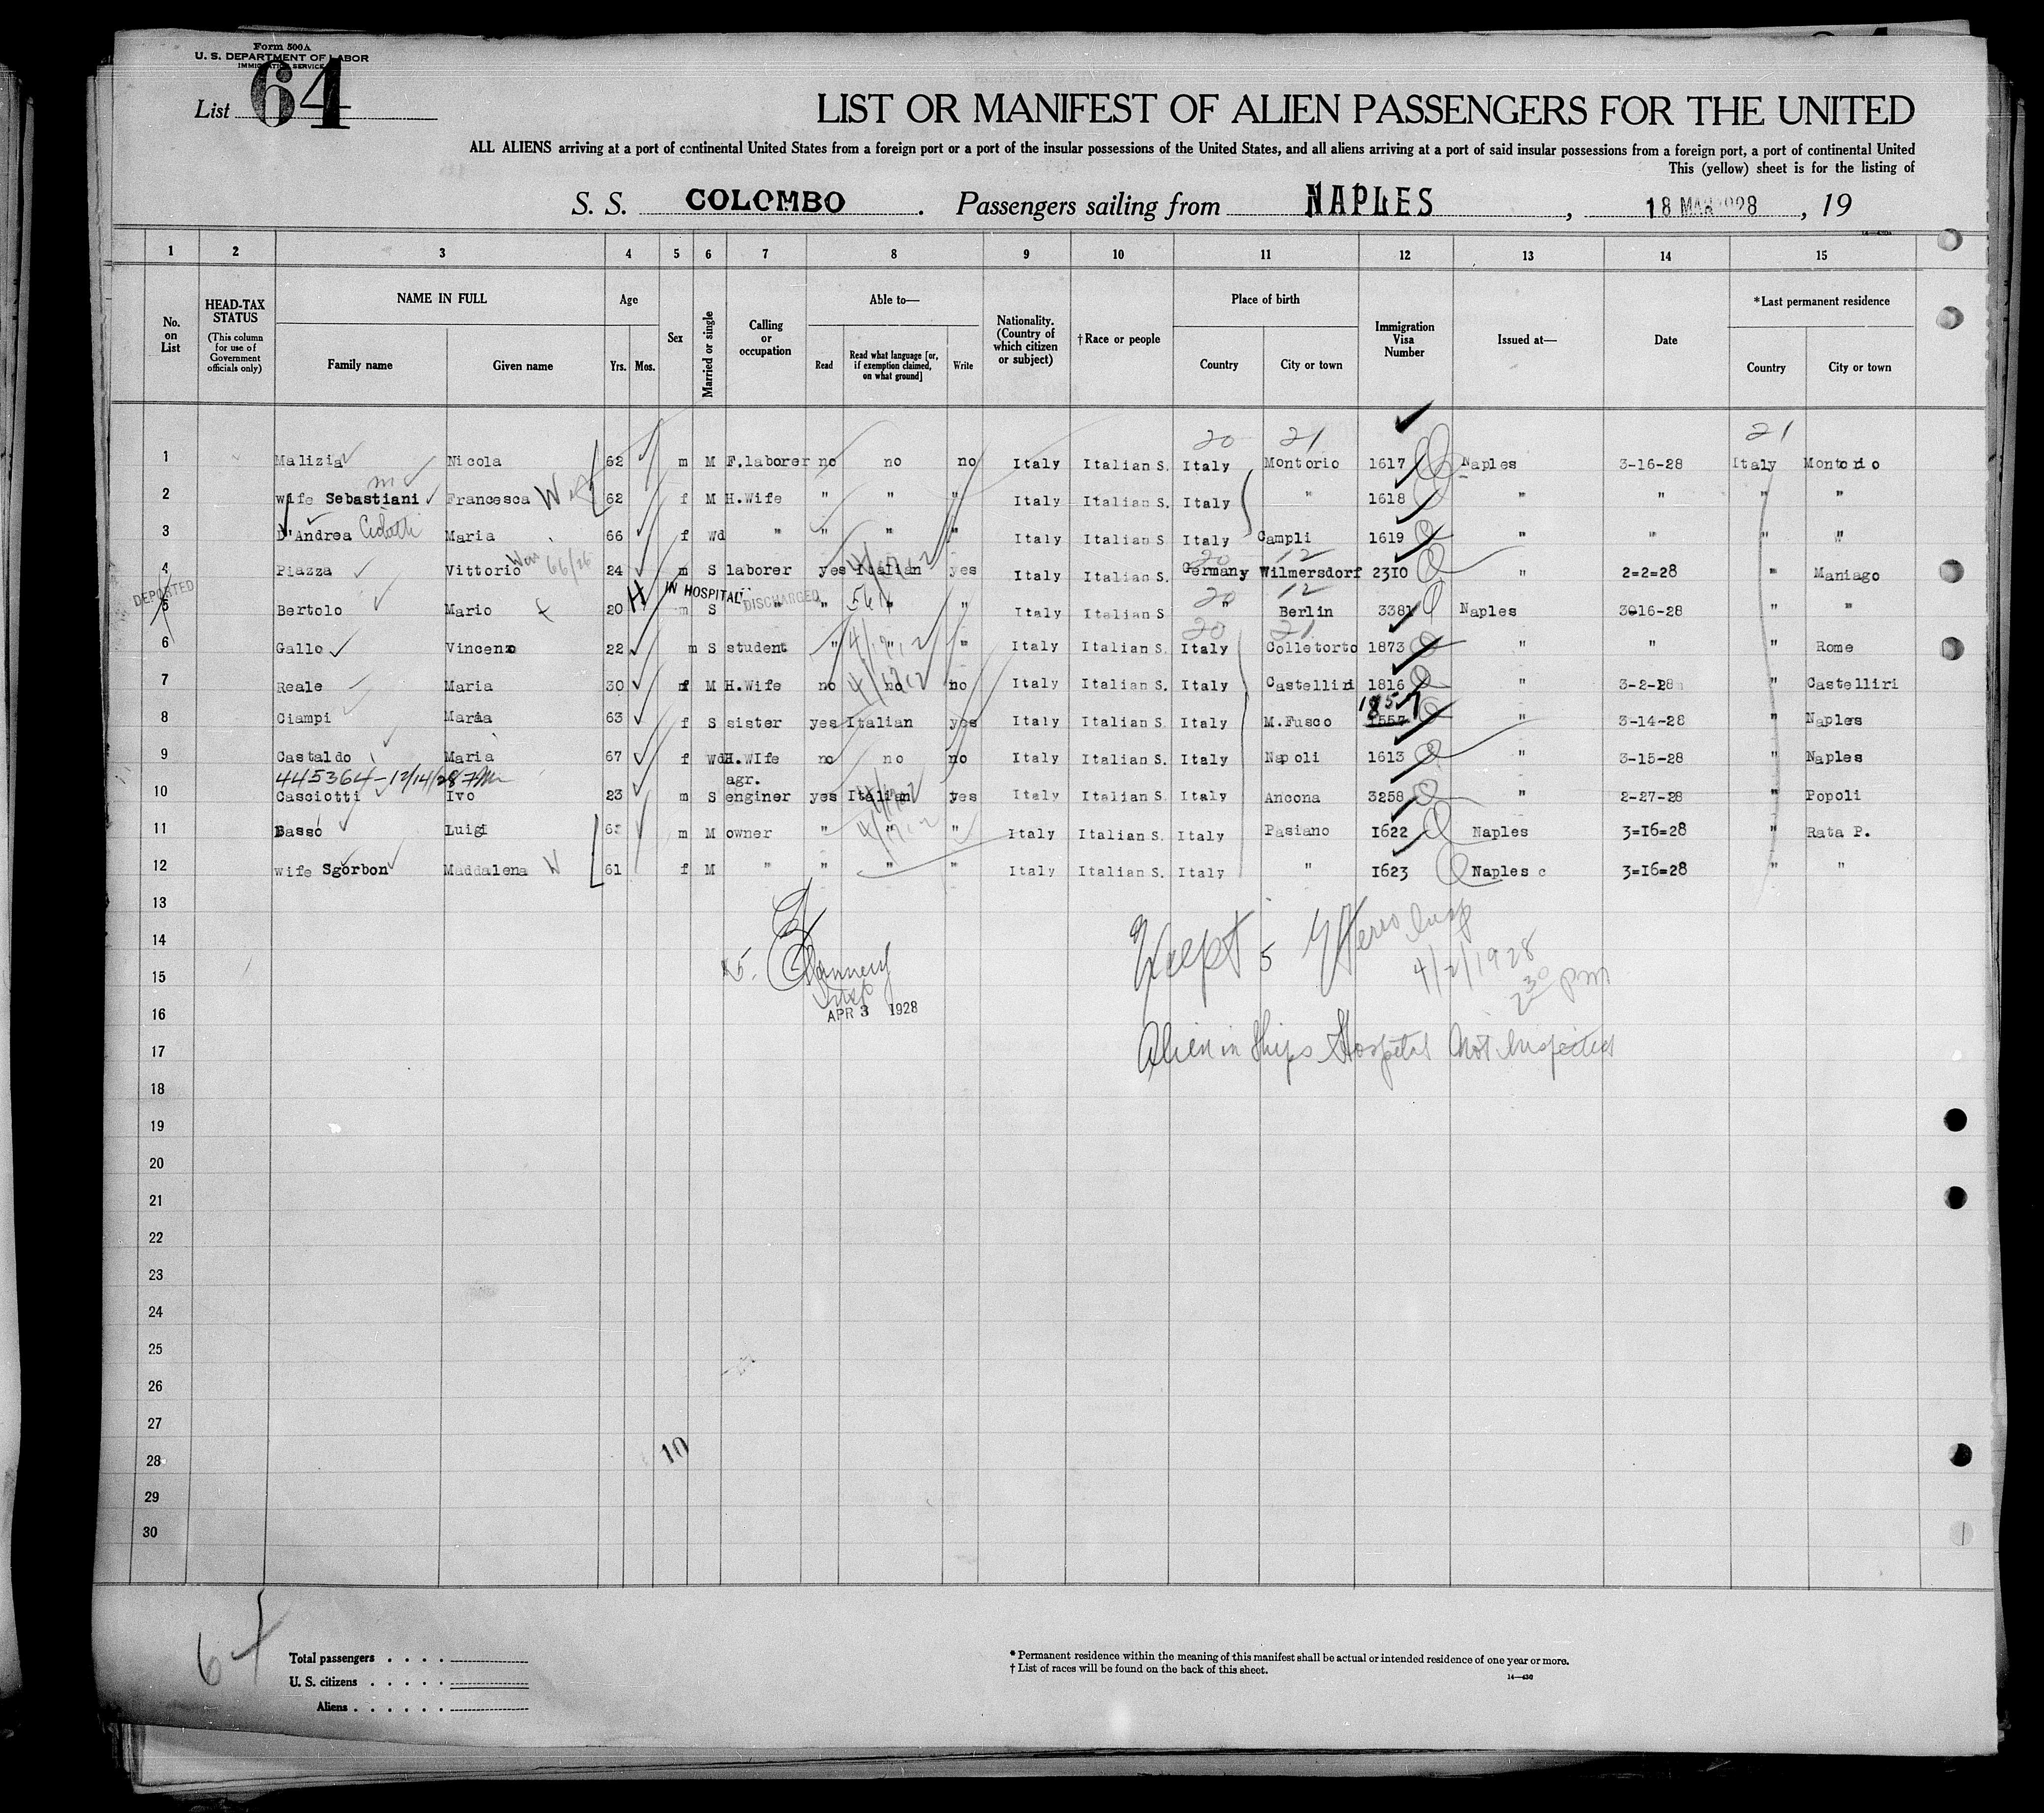 Form 500A
U. S. DEPARTMENT OF LABOR
IMMIGRATION SERVICE
List 64
LIST OR MANIFEST OF ALIEN PASSENGERS FOR THE UNITED
ALL ALIENS arriving at a port of continental United States from a foreign port or a port of the insular possessions of the United States, and all aliens arriving at a port of said insular possessions from a foreign port, a port of continental United
This (yellow) sheet is for the listing of
S. S. COLOMBO . Passengers sailing from NAPLES , 18 MAR 1928 , 19
1 2 3 4 5 6 7 8 9 10 11 12 13 14 15
No. on List
HEAD-TAX STATUS (This column for use of Government officials only)
NAME IN FULL
Family name Given name
Age
Yrs. Mos.
Sex
Married or single
Calling or occupation
Able to—
Read Read what language [or, if exemption claimed, on what ground] Write
Nationality. (Country of which citizen or subject)
† Race or people
Place of birth
Country City or town
Immigration Visa Number
Issued at—
Date
* Last permanent residence
Country City or town
20 21 21
1 Malizia Nicola 62 m M F.laborer no no no Italy Italian S. Italy Montorio 1617 Naples 3-16-28 Italy Montorio
2 wife Sebastiani Francesca W 62 f M H.Wife " " " Italy Italian S Italy " 1618 " " " "
3 D'Andrea Maria 66 f Wd " " " " Italy Italian S Italy Campli 1619 " " " "
20 12
4 Piazza Vittorio 24 m S laborer yes Italian yes Italy Italian S Germany Wilmersdorf 2310 " 2=2=28 " Maniago
DEPORTED H IN HOSPITAL DISCHARGED
20 12
5 Bertolo Mario 20 m S " " " " Italy Italian S " Berlin 3381 Naples 3016-28 " "
20 21
6 Gallo Vincenzo 22 m S student " " " Italy Italian S. Italy Colletorto 1873 " " " Rome
7 Reale Maria 30 f M H.Wife no no no Italy Italian S. Italy Castelliri 1816 " 3-2-28 " Castelliri
1857
8 Ciampi Maria 63 f S sister yes Italian yes Italy Italian S. Italy M.Fusco 1557 " 3-14-28 " Naples
9 Castaldo Maria 67 f Wd H.WIfe no no no Italy Italian S. Italy Napoli 1613 " 3-15-28 " Naples
445364-12/14/28
agr.
10 Casciotti Ivo 23 m S enginer yes Italian yes Italy Italian S. Italy Ancona 3258 " 2-27-28 " Popoli
11 Basso Luigi m M owner " " " Italy Italian S. Italy Pasiano 1622 Naples 3=16=28 " Rata P.
12 wife Sgorbon Maddalena W 61 f M " " " " Italy Italian S. Italy " 1623 Naples c 3=16=28 " "
13
14
15
16
17
18
19
20
21
22
23
24
25
26
27
28
29
30
Insp
APR 3 1928
Except 5
Insp
4/2/1928
2 30 PM
Alien in Ships Hospital Not Inspected
10
64
Total passengers . . . .
U. S. citizens . . . . .
Aliens . . . . . .
* Permanent residence within the meaning of this manifest shall be actual or intended residence of one year or more.
† List of races will be found on the back of this sheet.
14—430